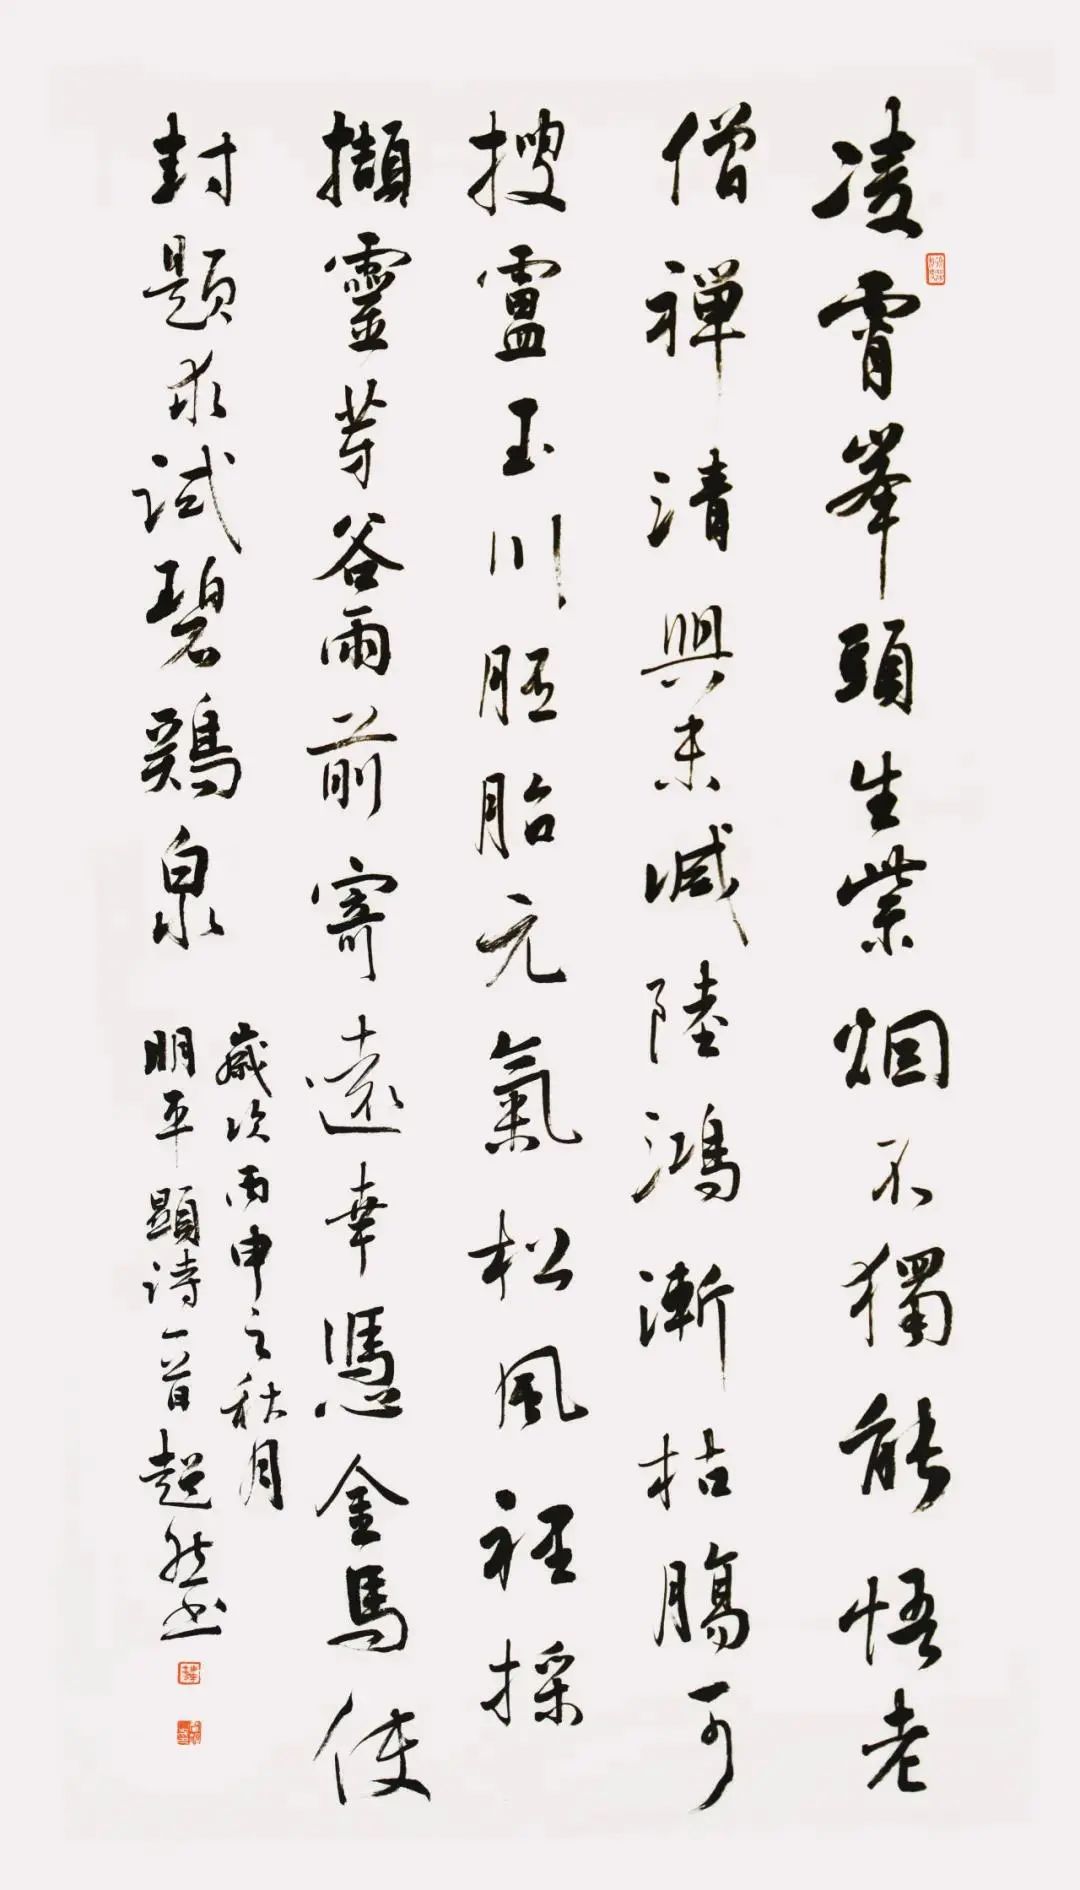 凌霄峯頭生紫烟不獨能悟老
僧禅清興未减陸鴻漸枯腸可
搜盧玉川胚胎元氣松風裡採
擷靈芽谷雨前寄遠幸憑金馬使
封題求試碧鷄泉
歲次丙申之秋月
明平顯诗一首超然书